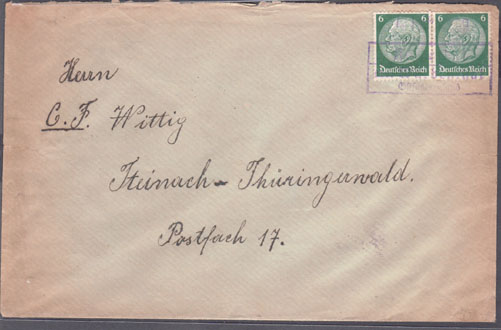 6 6
Deutsches Reich Deutsches Reich
Herrn
C. F. Wittig
Steinach - Thüringerwald.
Postfach 17.